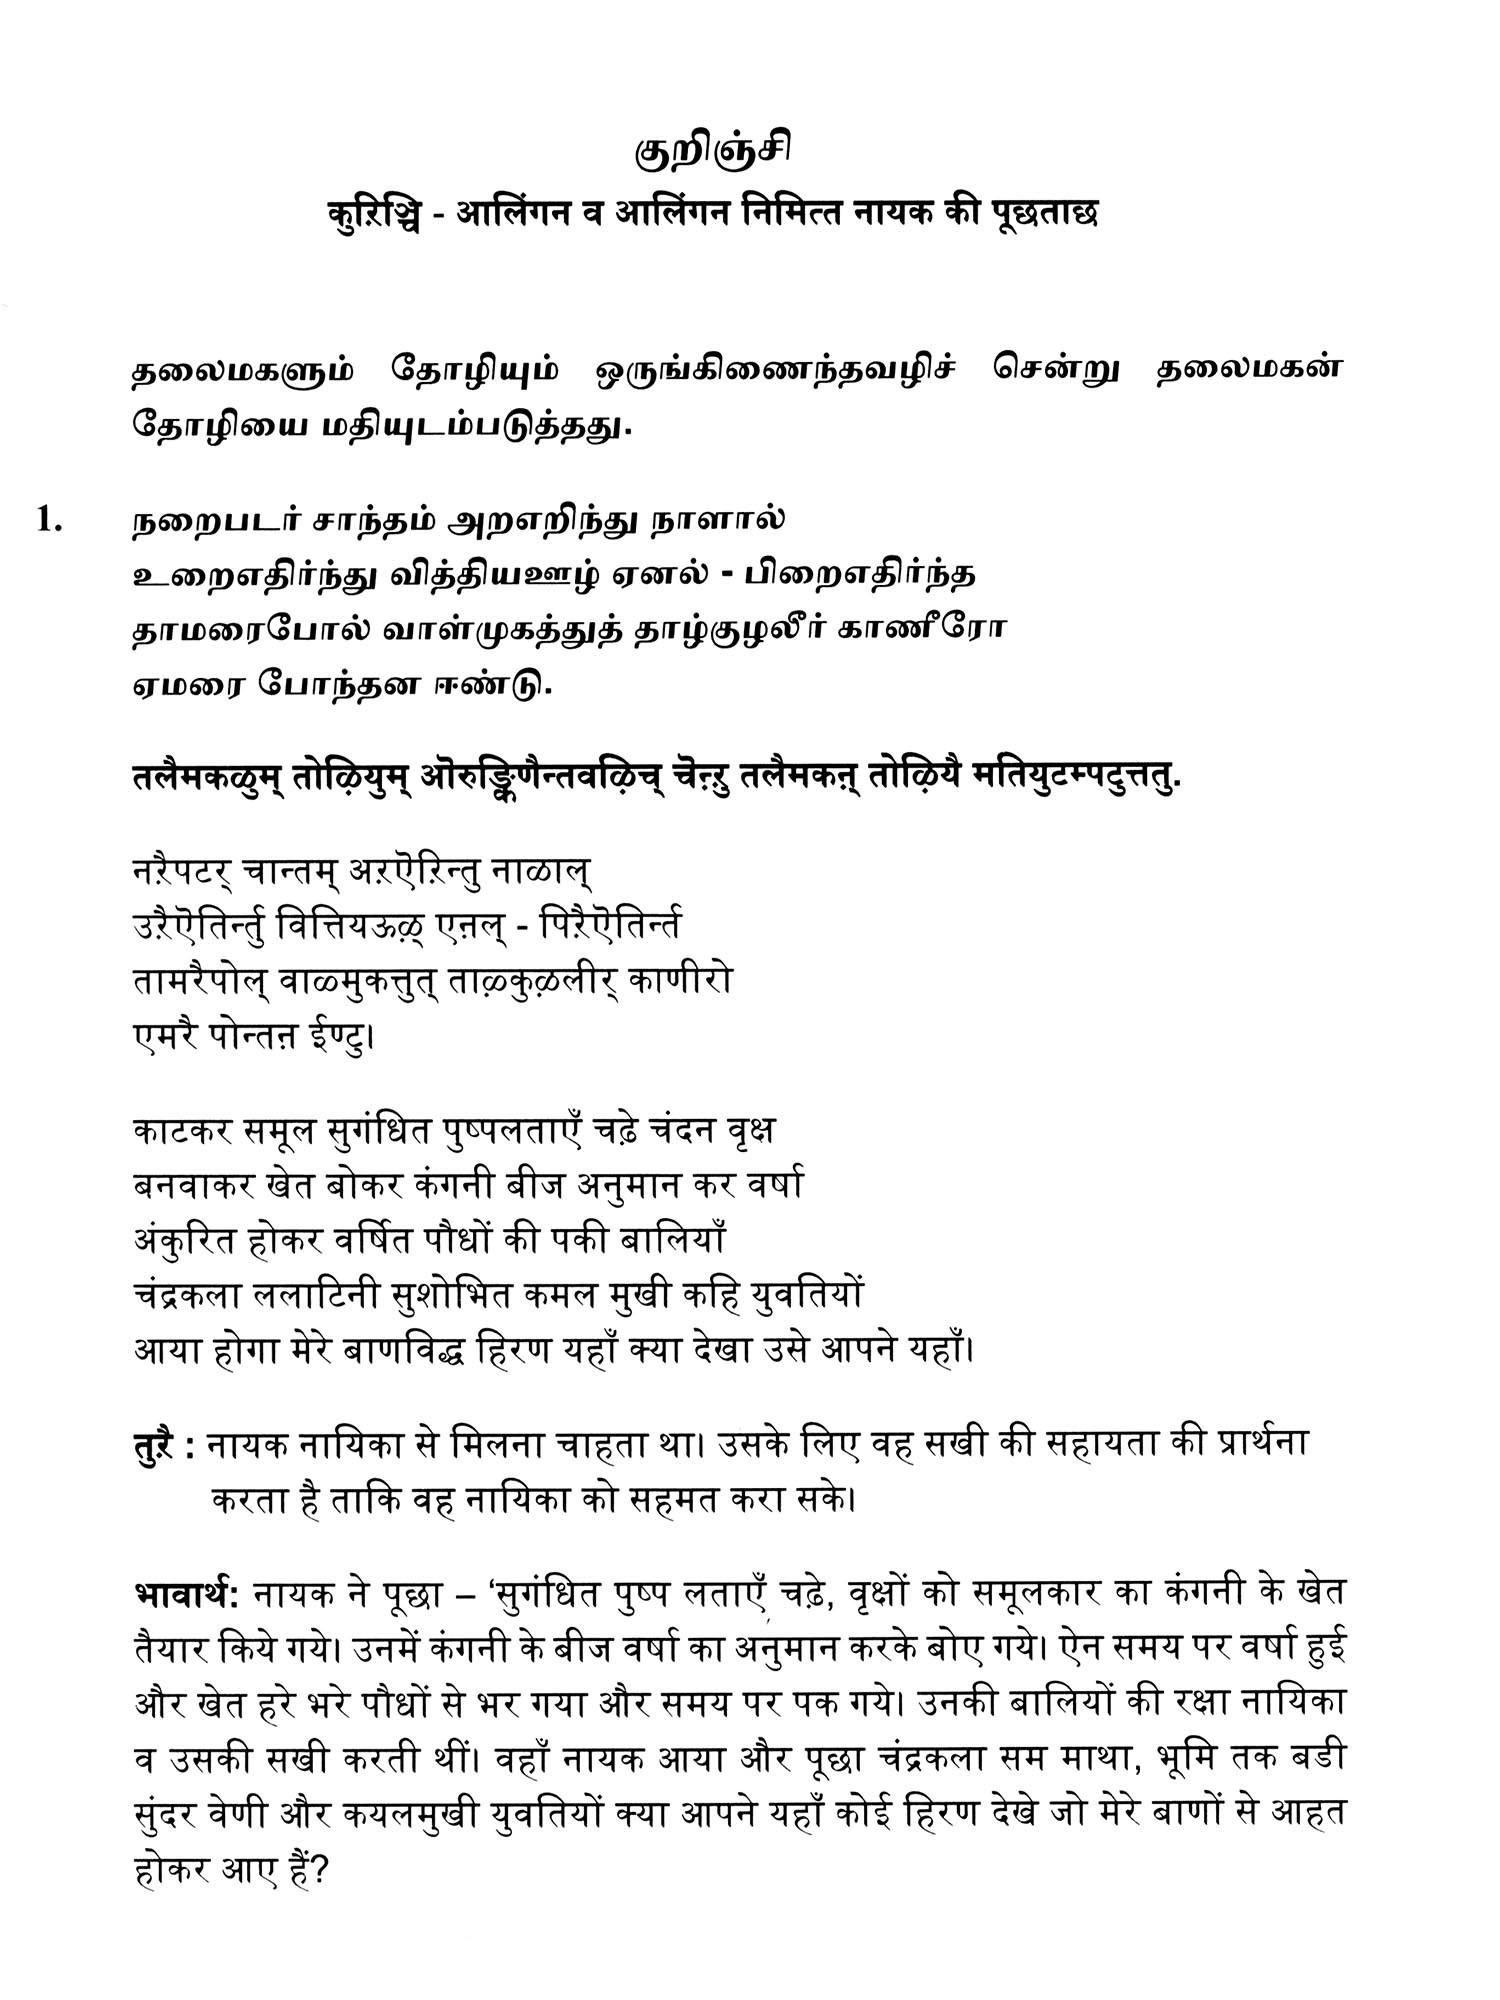 குறிஞ்சி
कुऱिञ्चि - आलिंगन व आलिंगन निमित्त नायक की पूछताछ
தலைமகளும் தோழியும் ஒருங்கிணைந்தவழிச் சென்று தலைமகன்
தோழியை மதியுடம்படுத்தது.
1. நறைபடர் சாந்தம் அறஎறிந்து நாளால்
உறைஎதிர்ந்து வித்தியஊழ் ஏனல் - பிறைஎதிர்ந்த
தாமரைபோல் வாள்முகத்துத் தாழ்குழலீர் காணீரோ
ஏமரை போந்தன ஈண்டு.
तलैमकळुम् तोऴियुम् ऒरुङ्किणैन्तवऴिच् चॆन्ऱु तलैमकऩ् तोऴियै मतियुटम्पटुत्ततु.
नऱैपटर् चान्तम् अऱऎऱिन्तु नाळाल्
उऱैऎतिर्न्तु वित्तियऊऴ् एऩल् - पिऱैऎतिर्न्त
तामरैपोल् वाळमुकत्तुत् ताऴकुऴलीर् काणीरो
एमरै पोन्तऩ ईण्टु।
काटकर समूल सुगंधित पुष्पलताएँ चढ़े चंदन वृक्ष
बनवाकर खेत बोकर कंगनी बीज अनुमान कर वर्षा
अंकुरित होकर वर्षित पौधों की पकी बालियाँ
चंद्रकला ललाटिनी सुशोभित कमल मुखी कहि युवतियों
आया होगा मेरे बाणविद्ध हिरण यहाँ क्या देखा उसे आपने यहाँ।
तुऱै : नायक नायिका से मिलना चाहता था। उसके लिए वह सखी की सहायता की प्रार्थना
करता है ताकि वह नायिका को सहमत करा सके।
भावार्थ: नायक ने पूछा – ‘सुगंधित पुष्प लताएँ चढ़े, वृक्षों को समूलकार का कंगनी के खेत
तैयार किये गये। उनमें कंगनी के बीज वर्षा का अनुमान करके बोए गये। ऐन समय पर वर्षा हुई
और खेत हरे भरे पौधों से भर गया और समय पर पक गये। उनकी बालियों की रक्षा नायिका
व उसकी सखी करती थीं। वहाँ नायक आया और पूछा चंद्रकला सम माथा, भूमि तक बडी
सुंदर वेणी और कयलमुखी युवतियों क्या आपने यहाँ कोई हिरण देखे जो मेरे बाणों से आहत
होकर आए हैं?